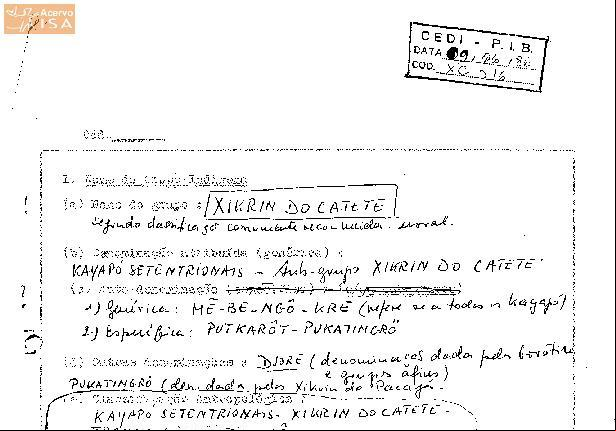 Acervo
ISA
CEDI - P.I.B.
DATA 09, 06, 86
COD. XC 16
I. Nome do Grupo Indígena
(a) Nome do grupo : XIKRIN DO CATETÉ
segundo classificação comumente reconhecida
(b) Denominação atribuída (genérica) :
KAYAPÓ SETENTRIONAIS - Sub-grupo XIKRIN DO CATETÉ
(c) Auto-denominação
1) Genérica : MẼ-BE-NGÔ-KRE (refere-se a todos os Kayapó)
2) Específica : PUTKARÔT - PUKATINGRÔ
(d) Outras denominações : DJORE (denominações dada pelos
e grupos afins)
PUKATINGRÔ (den. dada pelos Xikrin do Pacajá
KAYAPÓ SETENTRIONAIS - XIKRIN DO CATETÉ -